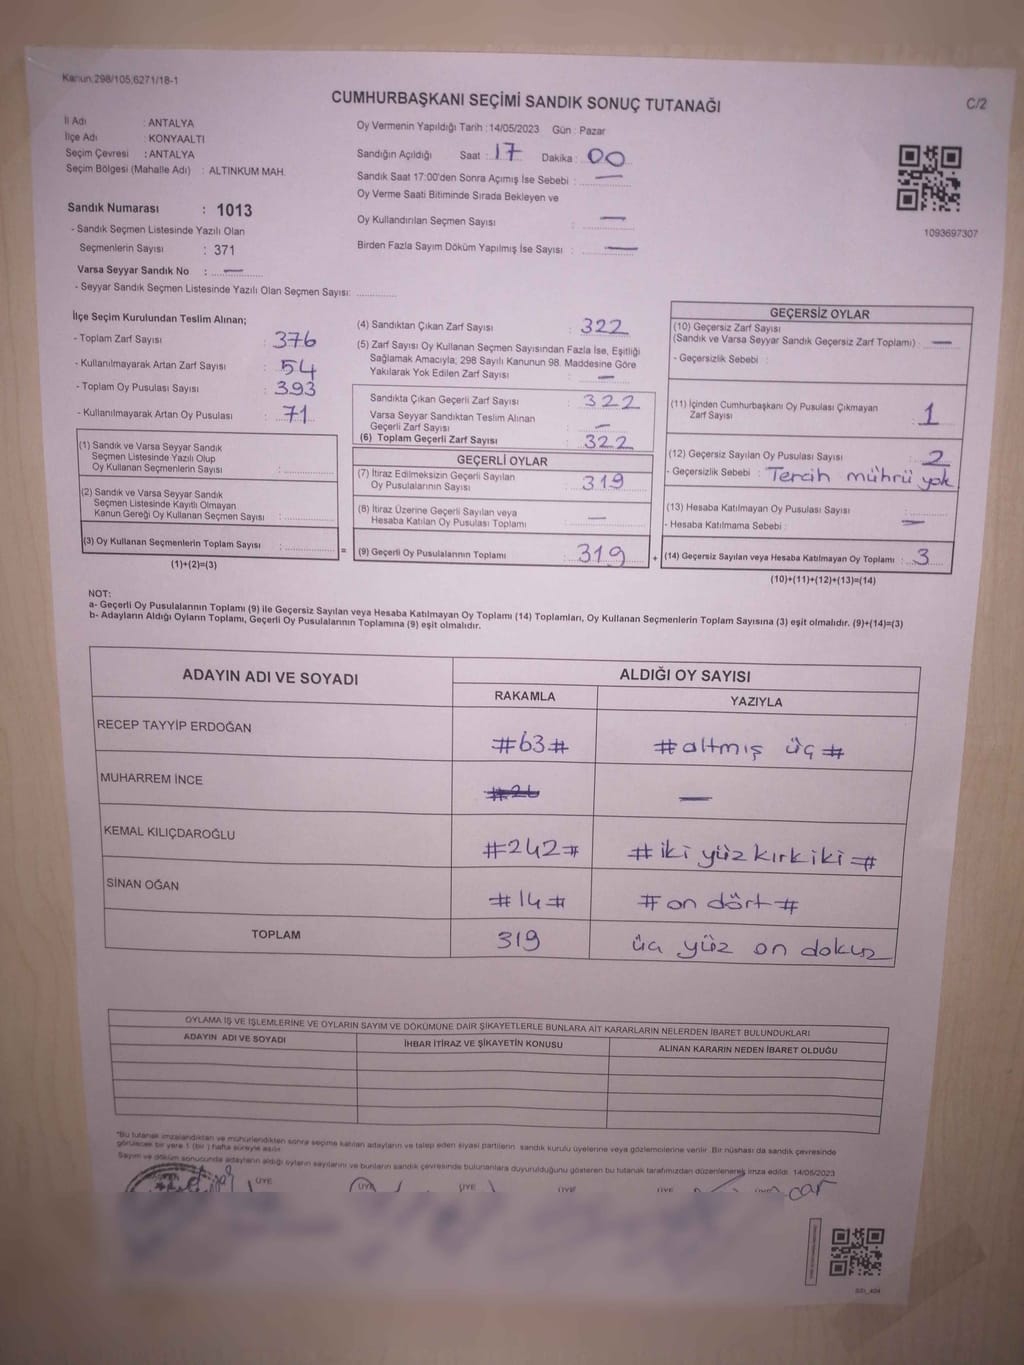 Kanun.298/105,6271/18-1
CUMHURBAŞKANI SEÇİMİ SANDIK SONUÇ TUTANAĞI
C/2
İl Adı : ANTALYA
İlçe Adı : KONYAALTI
Seçim Çevresi : ANTALYA
Seçim Bölgesi (Mahalle Adı) : ALTINKUM MAH.
Sandık Numarası : 1013
- Sandık Seçmen Listesinde Yazılı Olan
Seçmenlerin Sayısı : 371
Varsa Seyyar Sandık No : —
- Seyyar Sandık Seçmen Listesinde Yazılı Olan Seçmen Sayısı:
Oy Vermenin Yapıldığı Tarih :14/05/2023 Gün : Pazar
Sandığın Açıldığı Saat : 17 Dakika : 00
Sandık Saat 17:00'den Sonra Açımış İse Sebebi : —
Oy Verme Saati Bitiminde Sırada Bekleyen ve
Oy Kullandırılan Seçmen Sayısı : —
Birden Fazla Sayım Döküm Yapılmış İse Sayısı : —
1093697307
İlçe Seçim Kurulundan Teslim Alınan;
- Toplam Zarf Sayısı : 376
- Kullanılmayarak Artan Zarf Sayısı : 54
- Toplam Oy Pusulası Sayısı : 393
- Kullanılmayarak Artan Oy Pusulası : 71
(1) Sandık ve Varsa Seyyar Sandık
Seçmen Listesinde Yazılı Olup
Oy Kullanan Seçmenlerin Sayısı :
(2) Sandık ve Varsa Seyyar Sandık
Seçmen Listesinde Kayıtlı Olmayan
Kanun Gereği Oy Kullanan Seçmen Sayısı :
(3) Oy Kullanan Seçmenlerin Toplam Sayısı : =
(1)+(2)=(3)
(4) Sandıktan Çıkan Zarf Sayısı : 322
(5) Zarf Sayısı Oy Kullanan Seçmen Sayısından Fazla İse, Eşitliği
Sağlamak Amacıyla; 298 Sayılı Kanunun 98. Maddesine Göre
Yakılarak Yok Edilen Zarf Sayısı : —
Sandıkta Çıkan Geçerli Zarf Sayısı : 322
Varsa Seyyar Sandıktan Teslim Alınan
Geçerli Zarf Sayısı : —
(6) Toplam Geçerli Zarf Sayısı : 322
GEÇERLİ OYLAR
(7) İtiraz Edilmeksizin Geçerli Sayılan
Oy Pusulalarının Sayısı : 319
(8) İtiraz Üzerine Geçerli Sayılan veya
Hesaba Katılan Oy Pusulası Toplamı : —
(9) Geçerli Oy Pusulalarının Toplamı : 319 +
GEÇERSİZ OYLAR
(10) Geçersiz Zarf Sayısı
(Sandık ve Varsa Seyyar Sandık Geçersiz Zarf Toplamı) : —
- Geçersizlik Sebebi :
(11) İçinden Cumhurbaşkanı Oy Pusulası Çıkmayan
Zarf Sayısı : 1
(12) Geçersiz Sayılan Oy Pusulası Sayısı : 2
- Geçersizlik Sebebi : Tercih mührü yok
(13) Hesaba Katılmayan Oy Pusulası Sayısı :
- Hesaba Katılmama Sebebi : —
(14) Geçersiz Sayılan veya Hesaba Katılmayan Oy Toplamı : 3
(10)+(11)+(12)+(13)=(14)
NOT:
a- Geçerli Oy Pusulalarının Toplamı (9) ile Geçersiz Sayılan veya Hesaba Katılmayan Oy Toplamı (14) Toplamları, Oy Kullanan Seçmenlerin Toplam Sayısına (3) eşit olmalıdır. (9)+(14)=(3)
b- Adayların Aldığı Oyların Toplamı, Geçerli Oy Pusulalarının Toplamına (9) eşit olmalıdır.
ADAYIN ADI VE SOYADI
ALDIĞI OY SAYISI
RAKAMLA YAZIYLA
RECEP TAYYİP ERDOĞAN #63# #altmış üç#
MUHARREM İNCE —
KEMAL KILIÇDAROĞLU #242# #iki yüz kırk iki#
SİNAN OĞAN #14# #on dört#
TOPLAM 319 üç yüz on dokuz
OYLAMA İŞ VE İŞLEMLERİNE VE OYLARIN SAYIM VE DÖKÜMÜNE DAİR ŞİKAYETLERLE BUNLARA AİT KARARLARIN NELERDEN İBARET BULUNDUKLARI
ADAYIN ADI VE SOYADI İHBAR İTİRAZ VE ŞİKAYETİN KONUSU ALINAN KARARIN NEDEN İBARET OLDUĞU
*Bu tutanak imzalandıktan ve mühürlendikten sonra seçime katılan adayların ve talep eden siyasi partilerin sandık kurulu üyelerine veya gözlemcilerine verilir. Bir nüshası da sandık çevresinde
görülecek bir yere 1 (bir) hafta süreyle asılır.
Sayım ve döküm sonucunda adayların aldığı oyların sayılarını ve bunların sandık çevresinde bulunanlara duyurulduğunu gösteren bu tutanak tarafımızdan düzenlenerek imza edildi. 14/05/2023
ÜYE ÜYE ÜYE ÜYE ÜYE